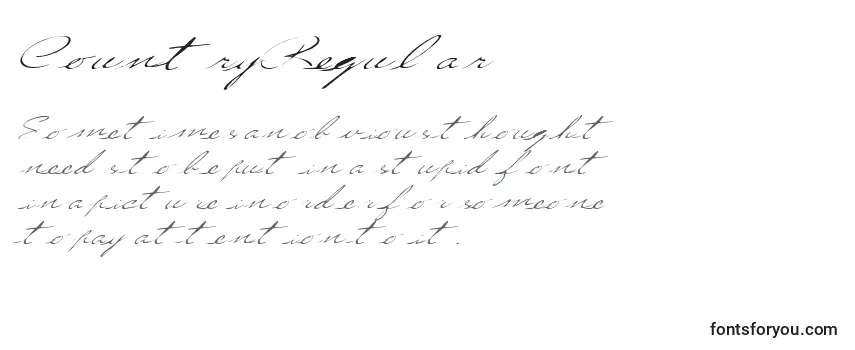 CountryRegular
Sometimes an obvious thought
needs to be put in a stupid font
in a picture in order for someone
to pay attention to it.
fontsforyou.com